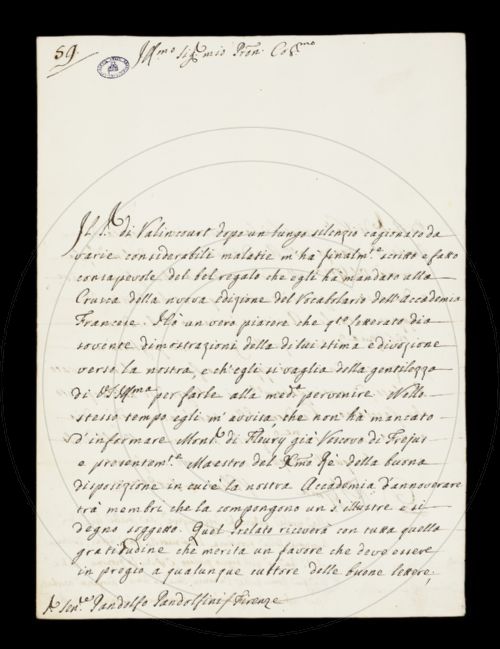 59.
Ill.mo Sig.r mio Pron. Col.mo
Il S.r di Valincourt dopo un lungo silenzio cagionato da
varie considerabili malatie m'ha finalm.e scritto e fatto
consapevole del bel regalo che egli ha mandato alla
Crusca della nuova edizione del Vocabolario dell'Accademia
Francese. Hò un vero piacere che q.to letterato dia
sovente dimostrazioni della di lui stima e divozione
verso la nostra, e ch'egli si vaglia della gentilezza
di V.S. Ill.ma per farle alla med.a pervenire. Nello
stesso tempo egli m'avvisa, che non hà mancato
d'informare Mons.r di Fleury già Vescovo di Frejus
e presentem.te Maestro del Xmo Rè della buona
disposizione in cui è la nostra Accademia d'annoverare
trà membri che la compongono un sì illustre e sì
degno soggetto. Quel Prelato riceverà con tutta quella
gratitudine che merita un favore che deve essere
in pregio a qualunque cultore delle buone lettere;
Sen.re Pandolfo Pandolfini / Firenze